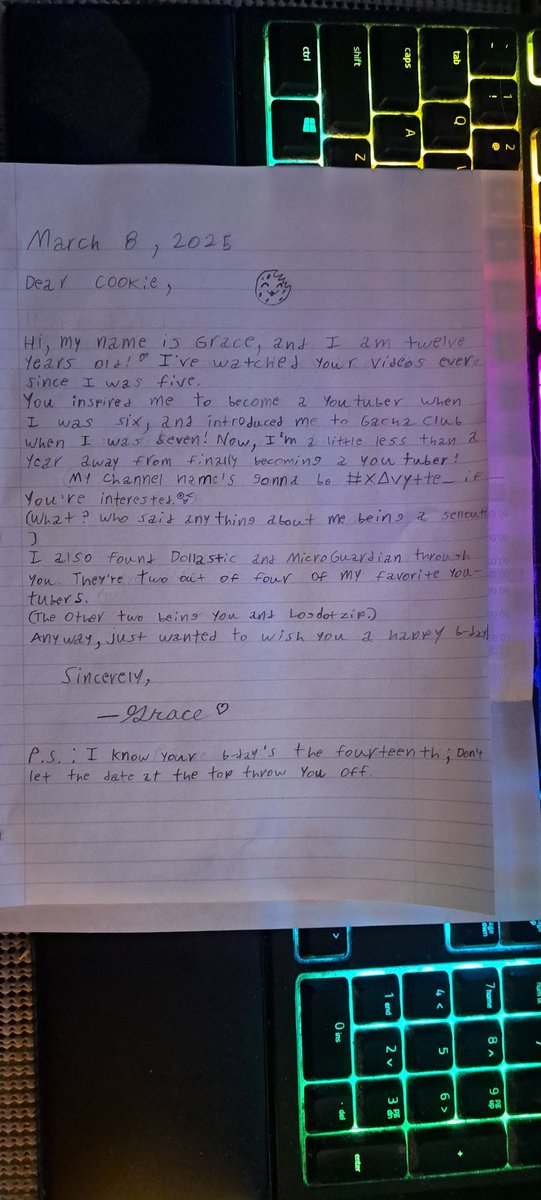 ctrl
shift
caps
tab
A
Q
Z
1 !
2 @
March 8, 2025
Dear Cookie,
Hi, my name is Grace, and I am twelve
years old! ♡ I've watched your videos ever
since I was five.
You inspired me to become a Youtuber when
I was six, and introduced me to Gacha Club
when I was seven! Now, I'm a little less than a
year away from finally becoming a youtuber!
(My channel name's gonna be #XΔvy++e_ if
you're interested.
(What? Who said anything about me being a sellout?
)
I also found Dollastic and MicroGuardian through
you. They're two out of four of my favorite You-
tubers.
(The other two being you and Losdotzip.)
Anyway, just wanted to wish you a happy b-day!
Sincerely,
—Grace ♡
P.S.: I know your b-day's the fourteenth; Don't
let the date at the top throw you off.
0 ins
. del
1 end
2
3 pg dn
4 <
5
6 >
7 home
8
9 pg up
enter
+